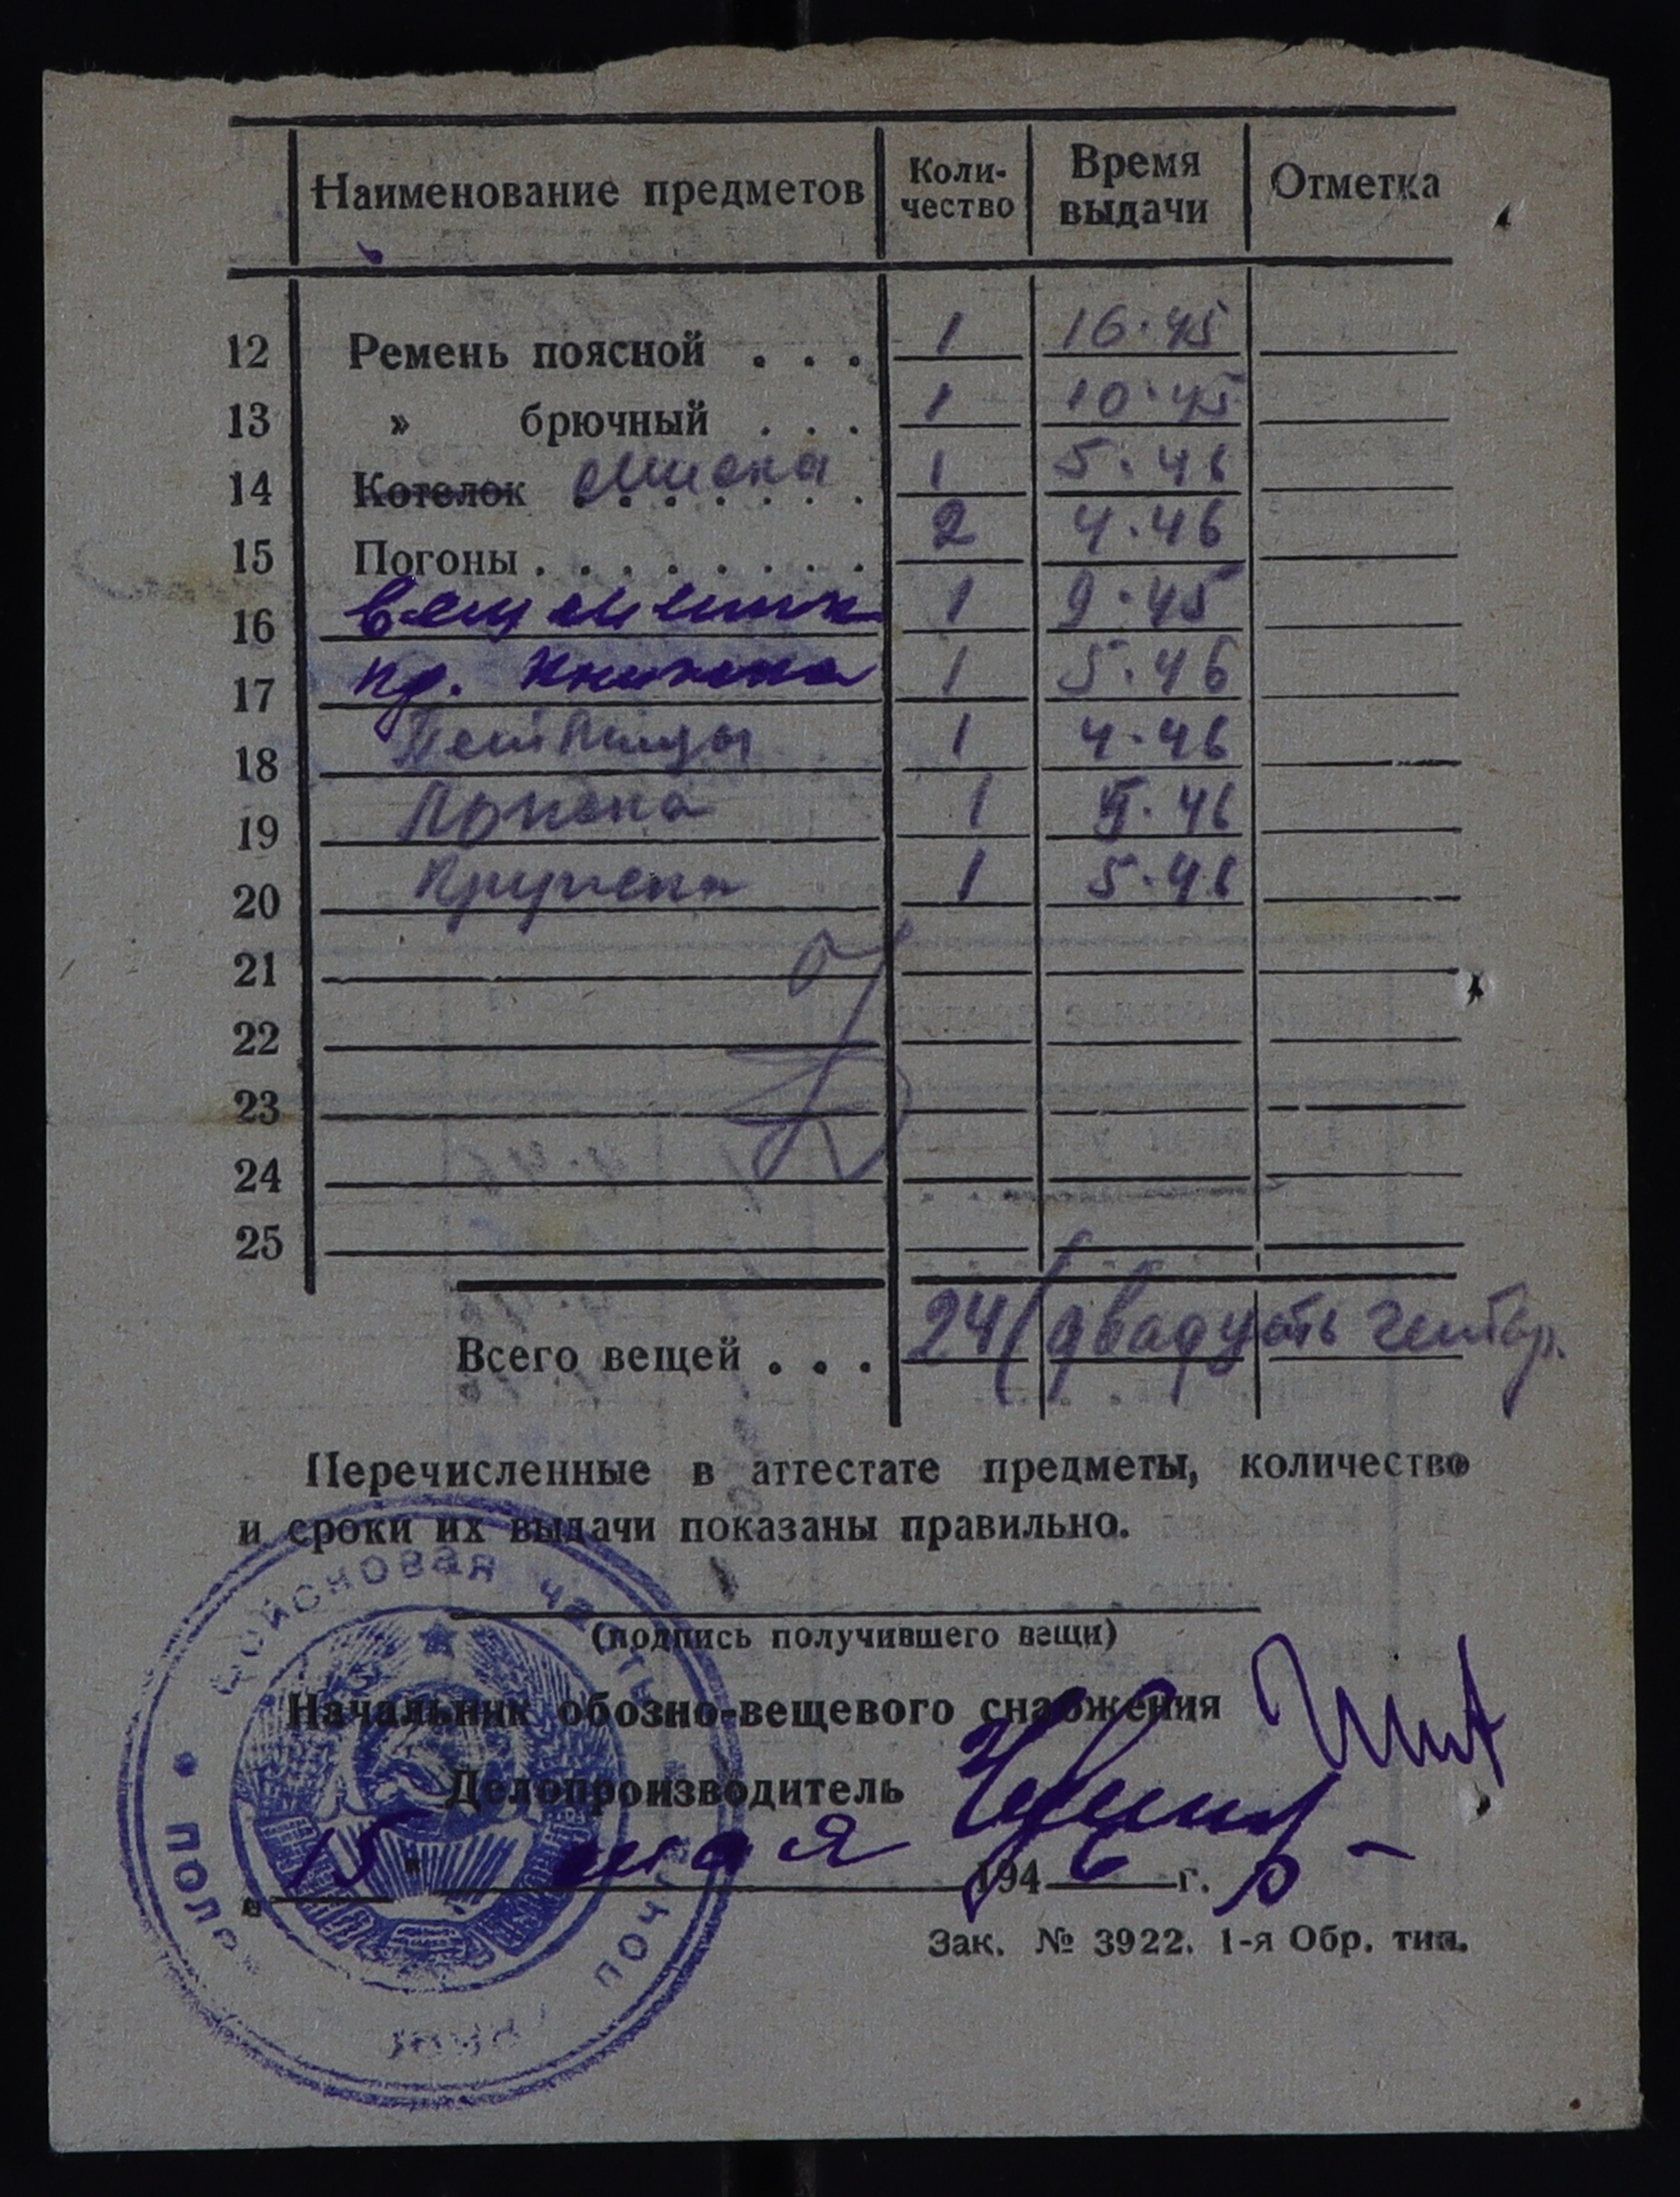 Наименование предметов Коли-чество Время выдачи Отметка
12 Ремень поясной . . . 1 10.45
13 » брючный . . . 1 10.45
14 Котелок миска 1 5.46
15 Погоны . . . . . . . . 2 4.46
16 вещ мешок 1 9.45
17 кр. книжка 1 5.46
18 Петлицы 1 4.46
19 Ложка 1 5.46
20 Кружка 1 5.46
21
22
23
24
25
Всего вещей . . . 24 (двадцать четыр.
Перечисленные в аттестате предметы, количество
и сроки их выдачи показаны правильно.
(подпись получившего вещи)
Начальник обозно-вещевого снабжения
Делопроизводитель
„ 15 " мая 1946 г.
Зак. № 3922. 1-я Обр. тип.
войсковая часть
полевая почта